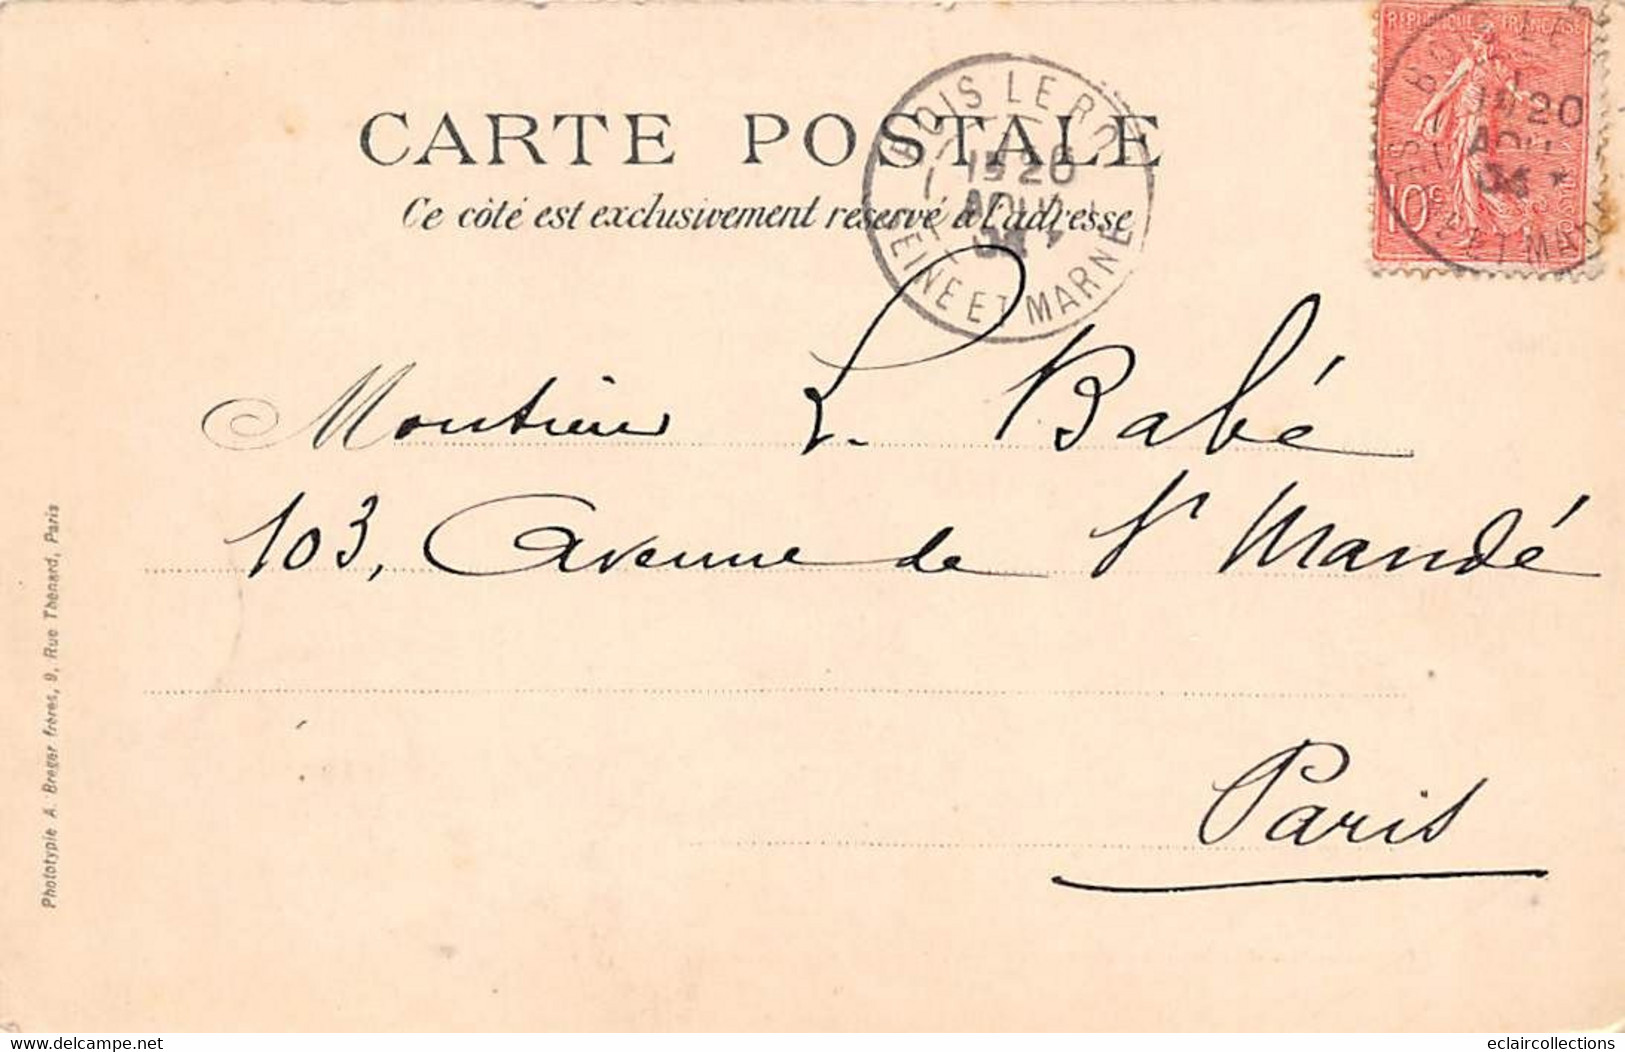 CARTE POSTALE
Ce côté est exclusivement réservé à l'adresse
BOIS LE ROI
20
AOUT
04
SEINE ET MARNE
REPUBLIQUE FRANÇAISE
BOIS LE
20
AOU
04
10c
ET MA
Monsieur L. Babé
103, Avenue de St Mandé
Paris
Phototypie A. Breger frères, 9, Rue Thénard, Paris
delcampe.net
eclaircollections